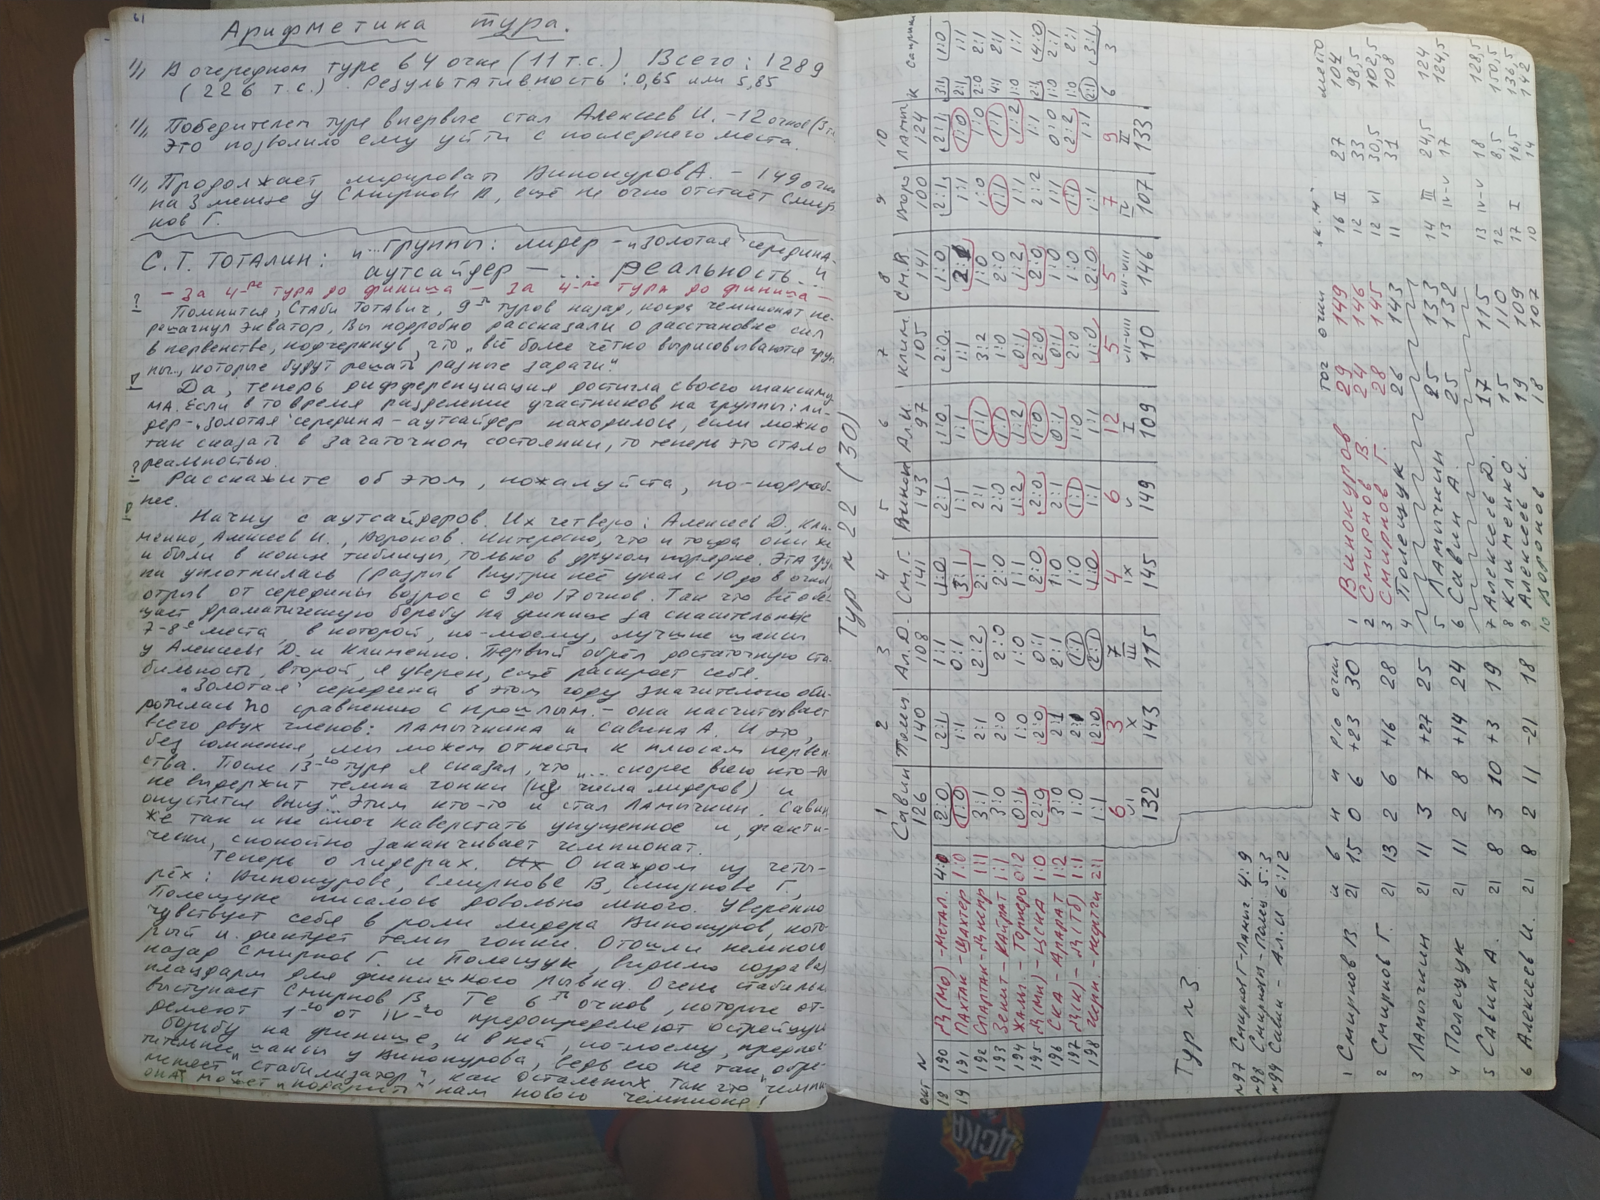 61
Арифметика тура.
В очередном туре 64 очка (11 т.с.) Всего: 1289
(226 т.с.). Результативность: 0,65 или 5,85
Победителем тура впервые стал Алексеев И. - 12 очков
Это позволило ему уйти с последнего места.
Продолжает лидировать Винокуров А. - 149 очк
на 3 меньше у Смирнова В, ещё на очко отстаёт Смир
нов Г.
С.Т. ТОТАЛИН: "...группы: лидер - "золотая середина
аутсайдер - ... реальность"
- За 4-ре тура до финиша - за 4-ре тура до финиша -
? Помнится, Стаби Тотавич, 9-ть туров назад, когда чемпионат пе-
решагнул экватор, Вы подробно рассказали о расстановке сил
в первенстве, подчеркнув, что "всё более чётко вырисовываются груп
пы.., которые будут решать разные задачи".
! Да, теперь дифференциация достигла своего максиму
ма. Если в то время разделение участников на группы: ли-
дер - "золотая" середина - аутсайдер находилось, если можно
так сказать в зачаточном состоянии, то теперь это стало
реальностью.
? Расскажите об этом, пожалуйста, по-подроб-
нее.
! Начну с аутсайдеров. Их четверо: Алексеев Д, Кли-
менко, Алексеев И., Воронов. Интересно, что и тогда они же
и были в конце таблицы, только в другом порядке. Эта груп
па уплотнилась (разрыв внутри неё упал с 10 до 8 очков
отрыв от середины возрос с 9 до 17 очков. Так что всё обе-
щает драматическую борьбу на финише за спасительные
7-8е места, в которой, по-моему, лучшие шансы
у Алексеева Д. и Клименко. Первый обрёл достаточную ста-
бильность, второй, я уверен, ещё раскроет себя.
"Золотая" середина в этом году значительно сокра
тилась по сравнению с прошлым - она насчитывает
всего двух членов: Ламычкина и Савина А. И это,
без сомнения, мы можем отнести к плюсам первен-
ства. После 13-го тура я сказал, что "... скорее всего кто-то
не выдержит темпа гонки (из числа лидеров) и
опустится вниз". Этим кто-то и стал Ламычкин. Савин
же так и не смог наверстать упущенное и, факти-
чески, спокойно заканчивает чемпионат.
Теперь о лидерах. О каждом из четы-
рёх: Винокурове, Смирнове В, Смирнове Г,
Полещуке писалось довольно много. Уверенно
чувствует себя в роли лидера Винокуров, кото-
рый и диктует темп гонки. Отошли немного
назад Смирнов Г. и Полещук, видимо создавая
плацдарм для финишного рывка. Очень стабильно
выступает Смирнов В. Те 6ть очков, которые от-
деляют 1-го от IV-го предопределяют острейшую
борьбу на финише, и в ней, по-моему, предпоч-
тительнее шансы у Винокурова, ведь его не так обре-
меняет "стабилизатор", как остальных. Так что "чемпи
онат" может "подарить" нам нового чемпиона!
Тур №22 (30)
1 2 3 4 5 6 7 8 9 10
Савин Полещ Ал.Д. См.Г. Винок Ал.И. Клим. См.В. Воро Ламыч К
126 140 108 141 143 97 105 141 100 124
18 190 Д(Мв) - Метал. 4:0 2:0 2:1 1:1 1:0 2:1 1:0 2:0 1:0 2:1 2:1 3:1 1:0
19 191 Пахтак - Шахтер 1:0 1:0 1:1 0:1 3:1 1:1 1:1 1:1 2:1 1:1 1:0 2:1 1:1
192 Спартак - Днепр 1:1 3:1 2:1 2:2 2:1 2:1 1:1 3:2 1:0 1:0 1:0 2:0 2:1
193 Зенит - Кайрат 1:1 3:0 2:0 2:0 2:0 2:0 1:1 1:0 2:0 1:1 1:1 4:1 2:1
194 Жальг - Торпедо 0:2 0:1 1:0 1:0 1:1 1:2 1:2 0:1 1:2 1:1 1:2 1:0 1:1
195 Д(Мн) - ЦСКА 1:0 2:0 2:0 0:1 2:0 2:0 0:0 2:0 2:0 2:2 1:1 2:1 4:0
196 СКА - Арарат 1:2 3:0 2:1 2:1 1:0 2:1 0:1 0:1 1:0 1:1 0:0 1:0 2:1
197 Д(К) - Д(Тб) 1:1 1:0 2:1 1:1 1:0 1:1 1:0 2:0 1:0 1:1 2:2 1:0 2:1
198 Черн - Нефтчи 2:1 1:1 2:0 2:1 1:0 1:1 1:1 1:0 2:0 1:1 1:1 2:1 3:1
6 3 7 4 6 12 5 5 7 9 6 3
VI X III IX V I VII-VIII VII-VIII IV II
132 143 115 145 149 109 110 146 107 133
Тур №3
№97 Смирнов Г - Ламыч. 4:9
№98 Смирнов В - Полещ 5:3
№99 Савин - Ал.И 6:12
и в н п р/о очки
1 Смирнов В. 21 15 0 6 +23 30
2 Смирнов Г. 21 13 2 6 +16 28
3 Ламычкин 21 11 3 7 +27 25
4 Полещук 21 11 2 8 +14 24
5 Савин А. 21 8 3 10 +3 19
6 Алексеев И. 21 8 2 11 -21 18
тог очки "к.м." место
1 Винокуров 29 149 16 II 27 104
2 Смирнов В 24 146 12 33 98,5
3 Смирнов Г. 28 145 12 VI 30,5 102,5
4 Полещук 26 143 11 31 108
5 Ламычкин 25 133 14 III 24,5 124
6 Савин А. 25 132 13 IV-V 17 124,5
7 Алексеев Д. 17 115 13 IV-V 18 128,5
8 Клименко 15 110 12 8,5 150,5
9 Алексеев И. 19 109 17 I 16,5 136,5
10 Воронов 18 107 10 14 142